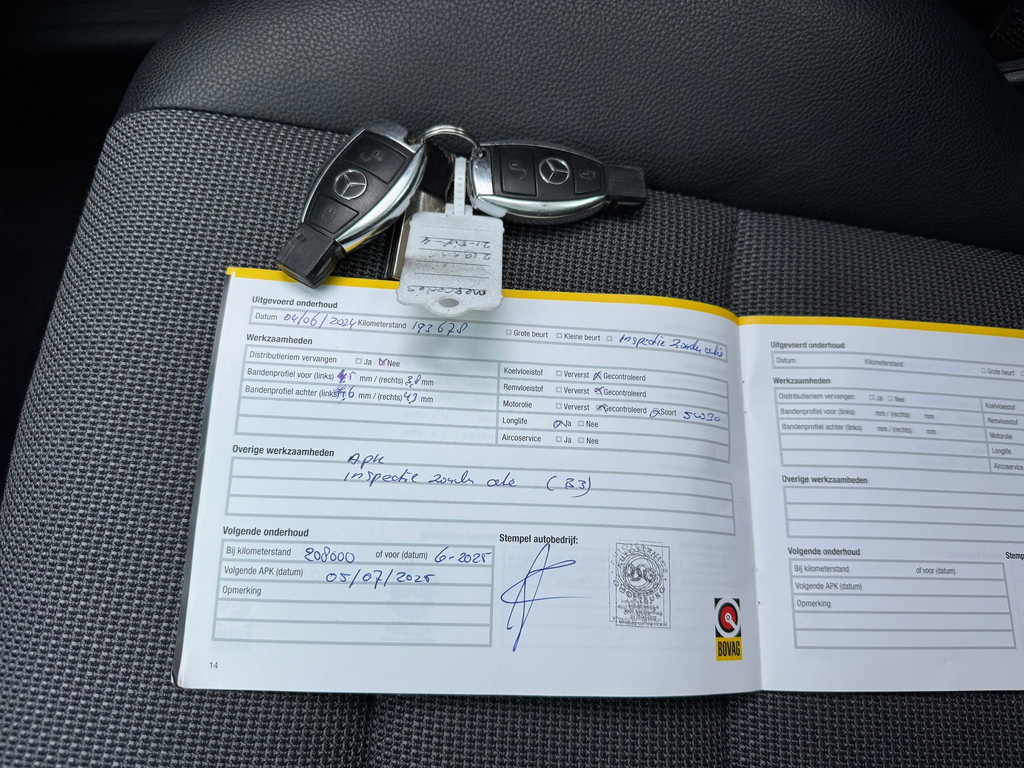 mercedes
Uitgevoerd onderhoud
Datum 04/06/2024 Kilometerstand 193678 Grote beurt Kleine beurt Inspectie zonder olie
Werkzaamheden
Distributieriem vervangen Ja Nee
Bandenprofiel voor (links) mm / (rechts) 3,8 mm
Bandenprofiel achter (links) mm / (rechts) 4,3 mm
Koelvloeistof Ververst Gecontroleerd
Remvloeistof Ververst Gecontroleerd
Motorolie Ververst Gecontroleerd Soort 5W30
Longlife Ja Nee
Aircoservice Ja Nee
Overige werkzaamheden
APK
Inspectie zonder olie (B3)
Volgende onderhoud
Bij kilometerstand 208000 of voor (datum) 6-2025
Volgende APK (datum) 05/07/2025
Opmerking
Stempel autobedrijf:
BOVAG
14
Uitgevoerd onderhoud
Datum Kilometerstand Grote beurt
Werkzaamheden
Distributieriem vervangen Ja Nee
Bandenprofiel voor (links) mm / (rechts) mm
Bandenprofiel achter (links) mm / (rechts) mm
Koelvloeistof
Remvloeistof
Motorolie
Longlife
Aircoservice
Overige werkzaamheden
Volgende onderhoud
Bij kilometerstand of voor (datum)
Volgende APK (datum)
Opmerking
Stemp